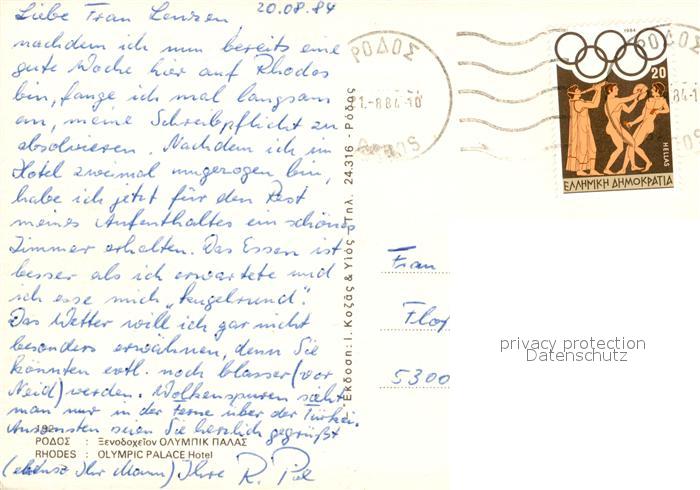 Liebe Frau Lenzen, 20.08.84
nachdem ich nun bereits eine
gute Woche hier auf Rhodos
bin, fange ich mal langsam
an, meine Schreibpflicht zu
absolvieren. Nachdem ich im
Hotel zweimal umgezogen bin,
habe ich jetzt für den Rest
meines Aufenthaltes ein schönes
Zimmer erhalten. Das Essen ist
besser als ich erwartete und
ich esse mich „kugelrund“.
Das Wetter will ich gar nicht
besonders erwähnen, denn Sie
könnten evtl. noch blasser (vor
Neid) werden. Wolkenspuren sieht
man nur in der Ferne über der Türkei.
Ansonsten seien Sie herzlich gegrüßt
(ebenso Ihr Mann) Ihre R.
192
ΡΟΔΟΣ : Ξενοδοχεῖον ΟΛΥΜΠΙΚ ΠΑΛΑΣ
RHODES : OLYMPIC PALACE Hotel
Ἔκδοση: Ι. Κοζᾶς & Υἱός - Τηλ. 24.316 - Ρόδος
ΡΟΔΟΣ
-8.84-10
RHODOS
ΡΟΔΟΣ
84-1
1984
20
HELLAS
ΕΛΛΗΝΙΚΗ ΔΗΜΟΚΡΑΤΙΑ
Frau
5300
privacy protection
Datenschutz